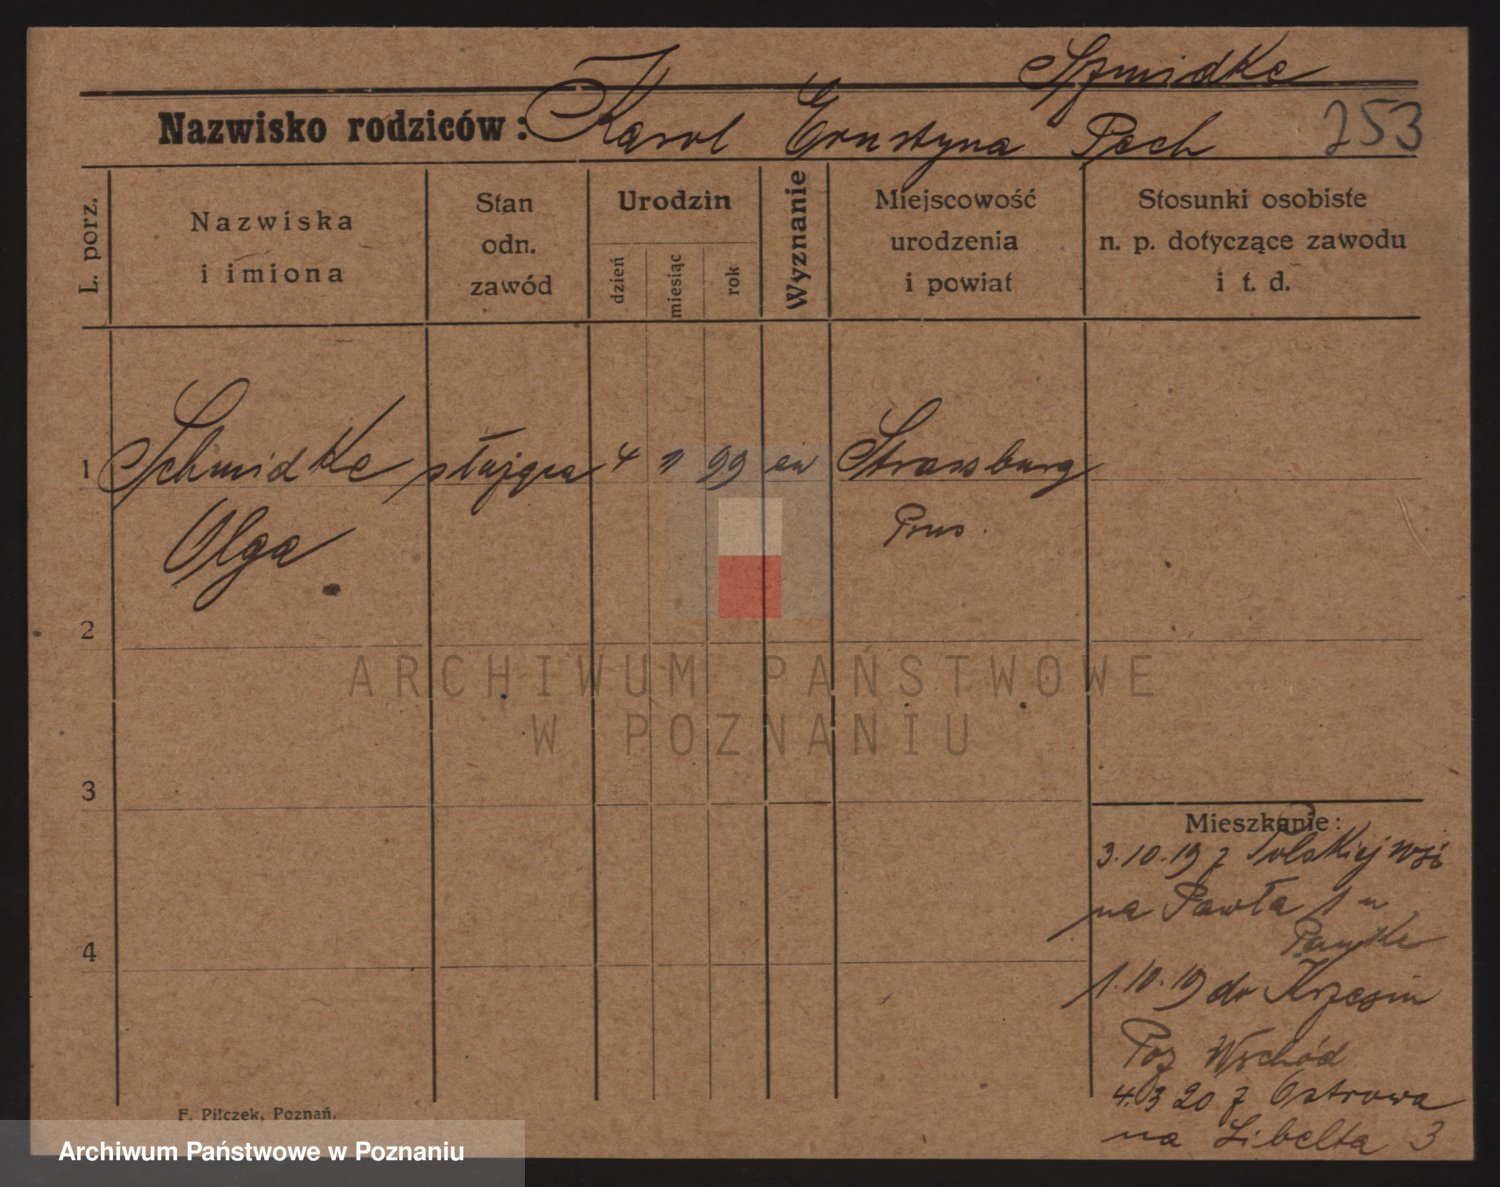 Szmidke
Nazwisko rodziców: Karol Ernstyna Pech 253
L. porz.
Nazwiska
i imiona
Stan
odn.
zawód
Urodzin
dzień
miesiąc
rok
Wyznanie
Miejscowość
urodzenia
i powiat
Stosunki osobiste
n. p. dotyczące zawodu
i t. d.
1 Schmidke służąca 4 99 ew Strassburg
Olga Prus.
2
3
4
Mieszkanie:
3.10.19 z Polskiej wsi
na Pawła 1 u
1.10.19 do Krzesin
Poz Wschód
4.3 20 z Ostrowa
na Libelta 3
F. Pilczek, Poznań.
ARCHIWUM PAŃSTWOWE
W POZNANIU
Archiwum Państwowe w Poznaniu